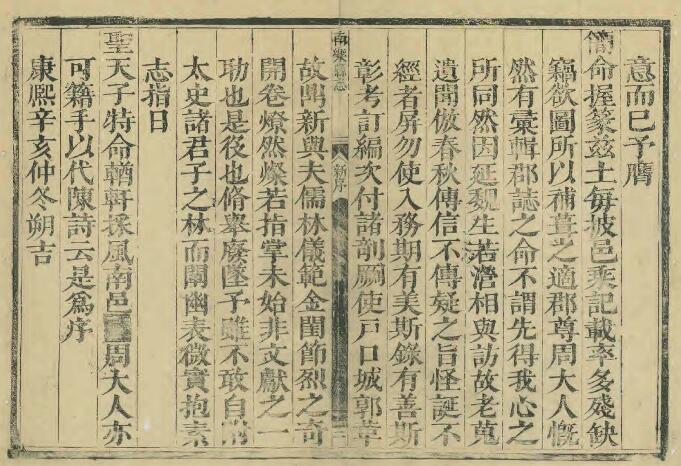 意而已予膺
簡命握篆兹土每披邑乘記載率多殘缺
竊欲圖所以補葺之適郡尊周大人慨
然有彙輯郡誌之命不謂先得我心之
所同然因延魏生若瀯相與訪故老蒐
遺聞倣春秋傳信不傳疑之旨怪誕不
經者屏勿使入務期有美斯錄有善斯
彰考訂編次付諸剞劂使戸口城郭革
南樂縣志
新序
二
故鼎新與夫儒林儀範金閨節烈之奇
開卷燎然燦若指掌未始非文獻之一
助也是後也脩舉廢墜予雖不敢自附
太史諸君子之林而闡幽表微實抱素
志指日
聖天子特命輶軒採風南邑周大人亦
可籍手以代陳詩云是爲序
康熙辛亥仲冬朔吉